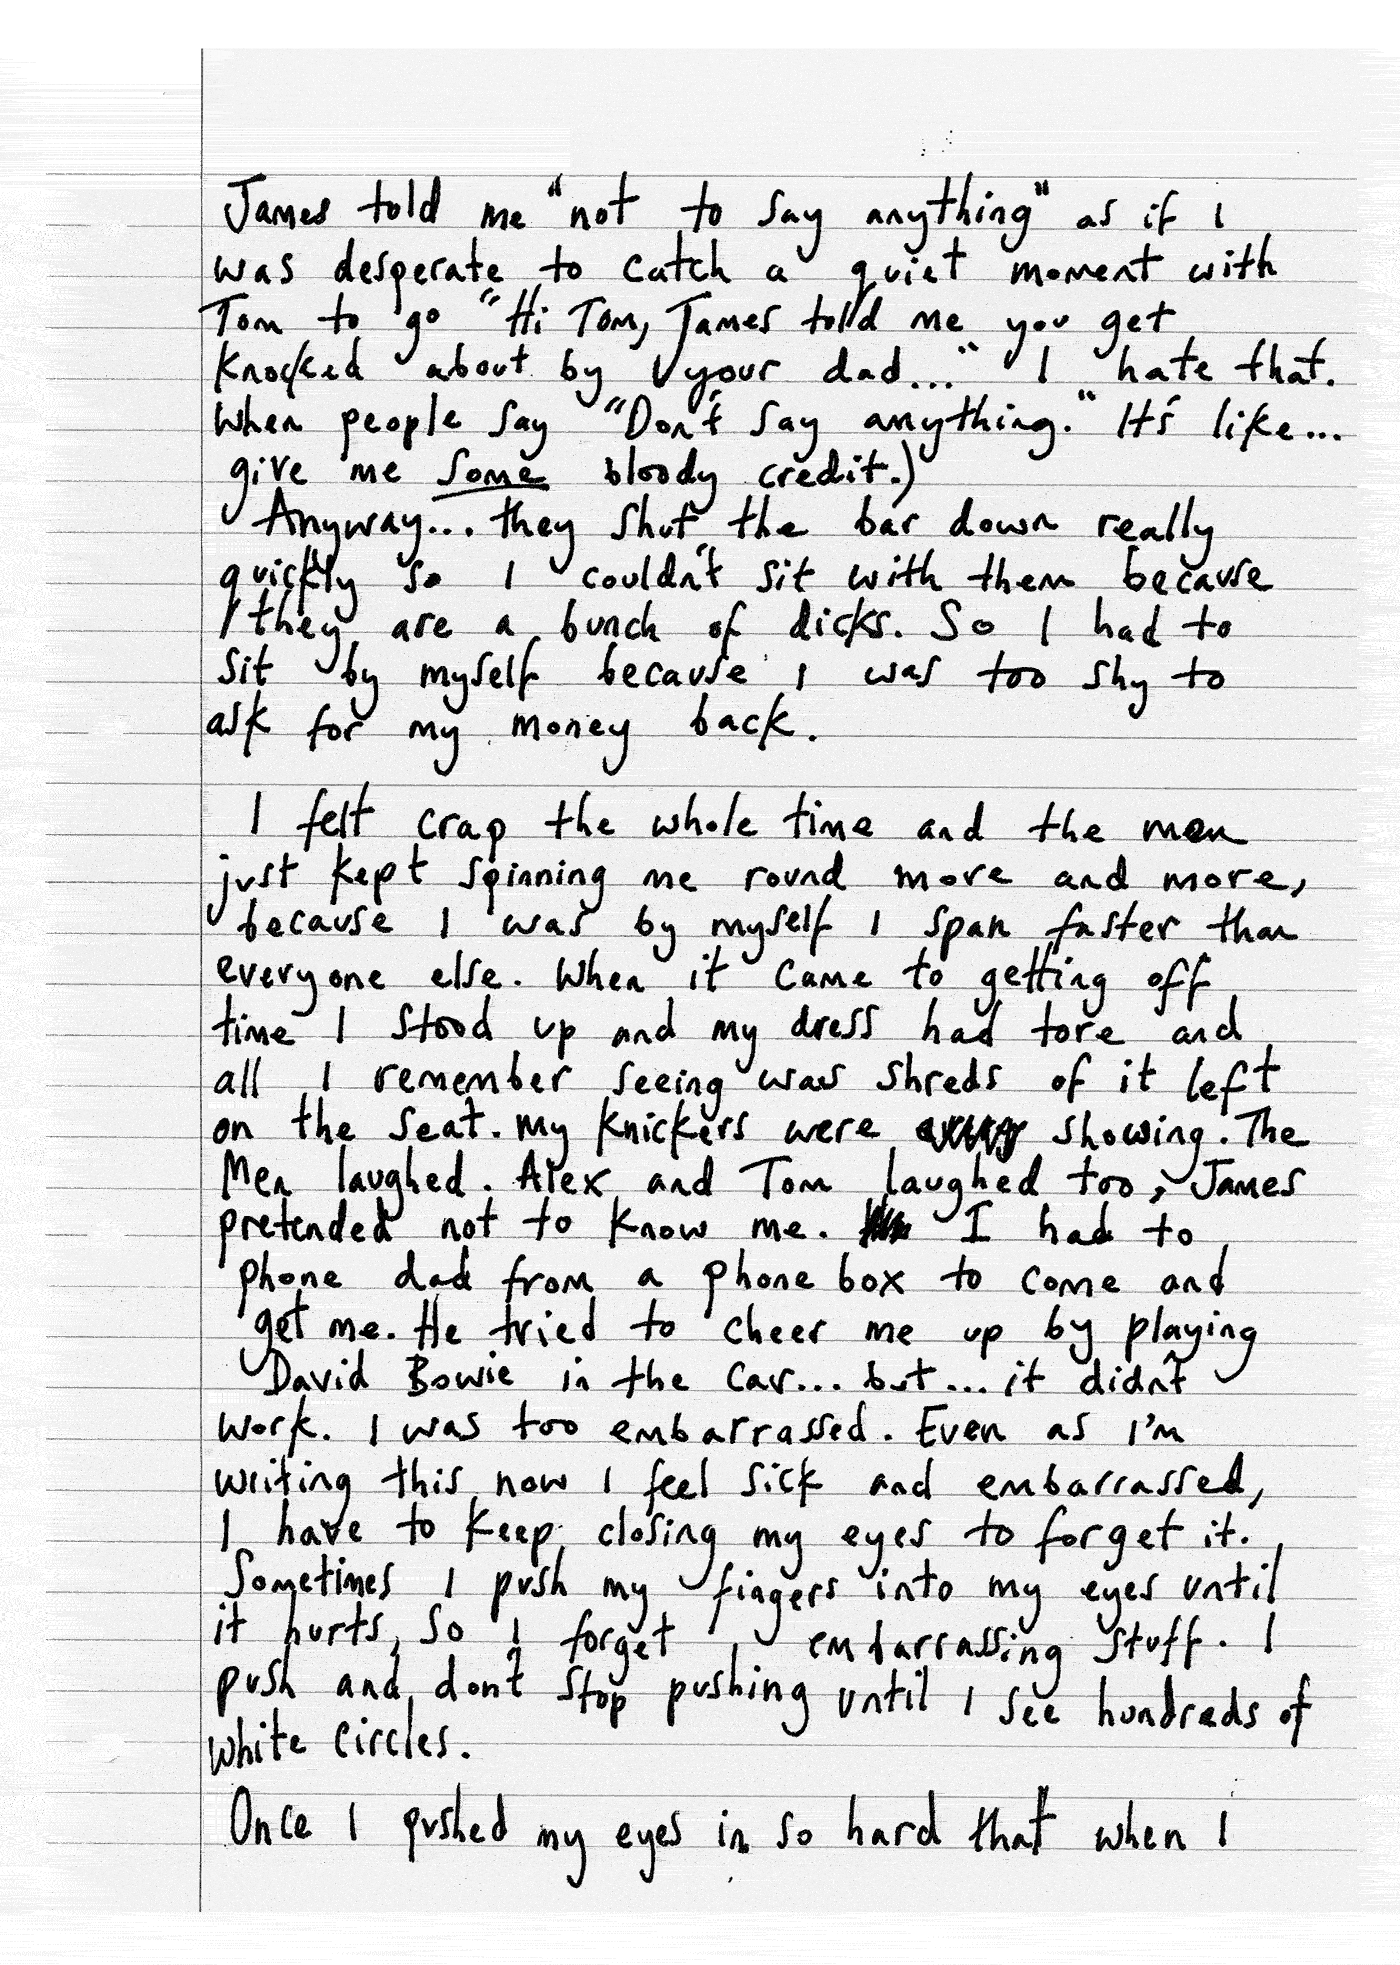 James told me "not to say anything" as if I
was desperate to catch a quiet moment with
Tom to go "Hi Tom, James told me you get
knocked about by your dad..." I hate that.
When people say "Don't say anything." It's like...
give me some bloody credit.)
Anyway... they shut the bar down really
quickly so I couldn't sit with them because
they are a bunch of dicks. So I had to
sit by myself because I was too shy to
ask for my money back.
I felt crap the whole time and the men
just kept spinning me round more and more,
because I was by myself I span faster than
everyone else. When it came to getting off
time I stood up and my dress had tore and
all I remember seeing was shreds of it left
on the seat. My knickers were showing. The
Men laughed. Alex and Tom laughed too, James
pretended not to know me. I had to
phone dad from a phone box to come and
get me. He tried to cheer me up by playing
David Bowie in the car... but... it didn't
work. I was too embarrassed. Even as I'm
writing this now I feel sick and embarrassed,
I have to keep closing my eyes to forget it.
Sometimes I push my fingers into my eyes until
it hurts, so I forget embarrassing stuff. I
push and don't stop pushing until I see hundreds of
white circles.
Once I pushed my eyes in so hard that when I